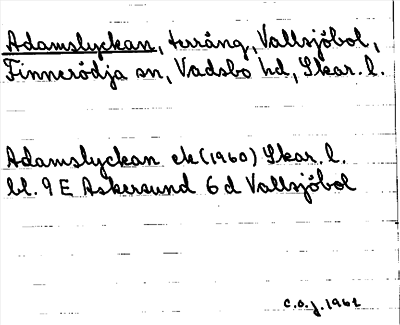 Adamslyckan, terräng, Vallsjöbol,
Finnerödja sn, Vadsbo hd, Skar. l.
Adamslyckan ek (1960) Skar. l.
bl. 9 E Askersund 6 d Vallsjöbol
C.O.J. 1961